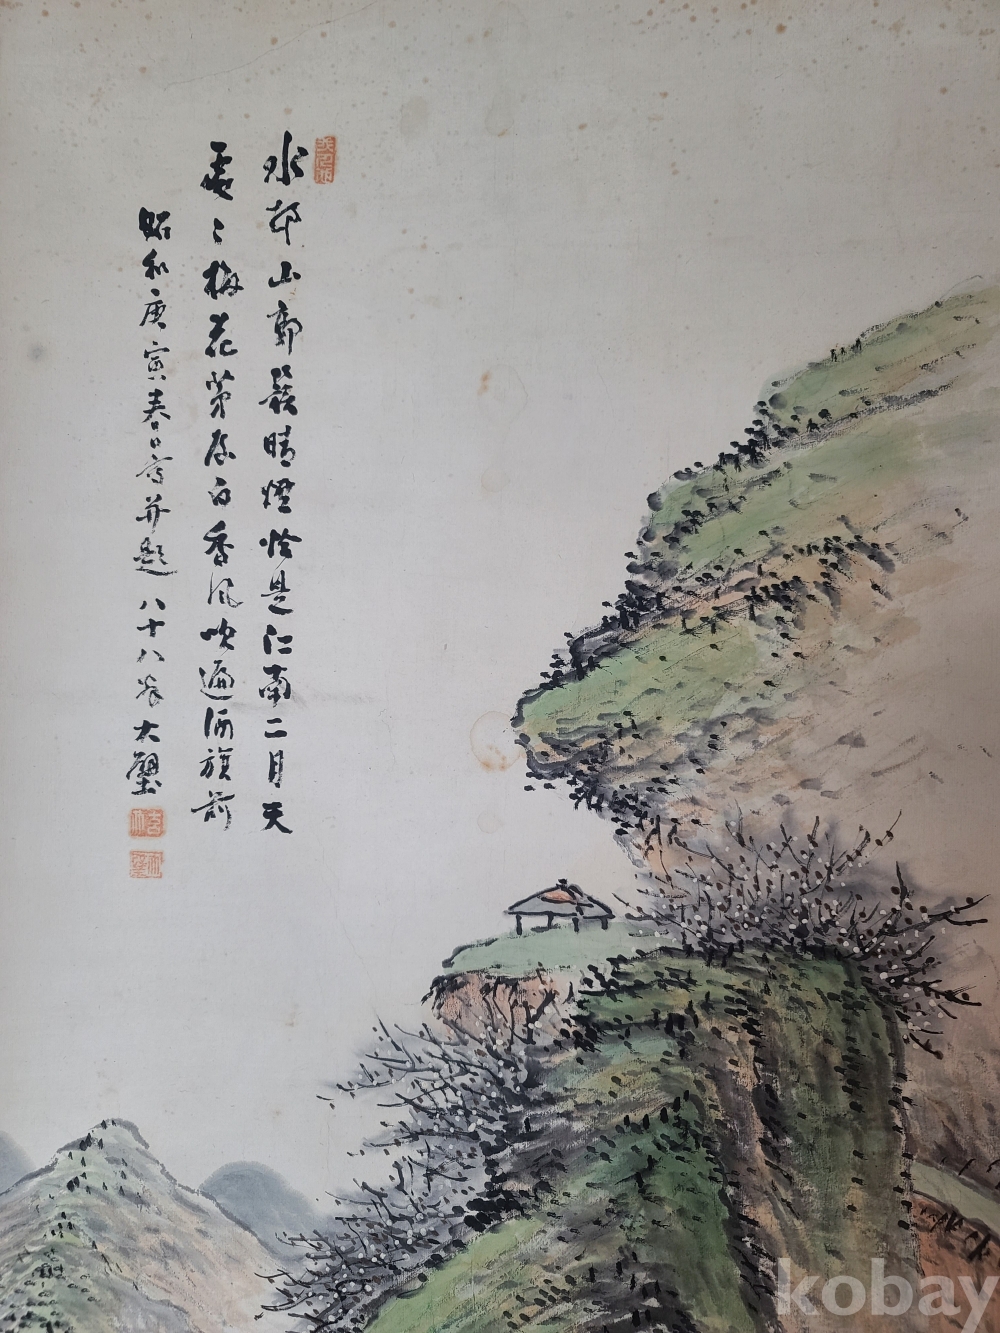 水邨山郭簇晴煙恰是江南二月天
處々梅花茅屋白香風吹遍酒旗前
昭和庚寅春日写并題 八十八叟 大壑
kobay